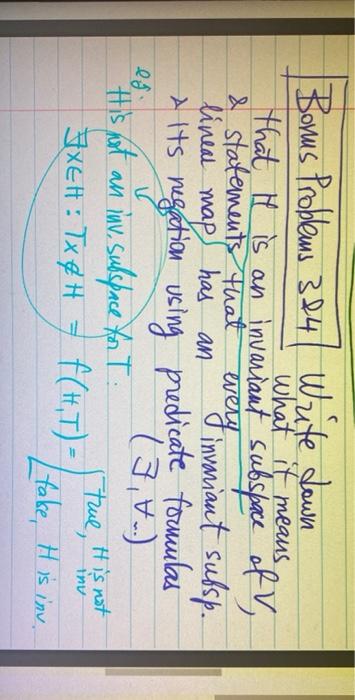 Bonus Problems 3&4 Write down
what it means
that H is an invariant subspace of V,
& statements that every
linear map has an invariant subsp.
& its negation using predicate formulas
(∃, ∀...)
eg:
H is not an inv. subspace for T:
∃x∈H : Tx∉H = f(H,T) = { true, H is not inv
false, H is inv.